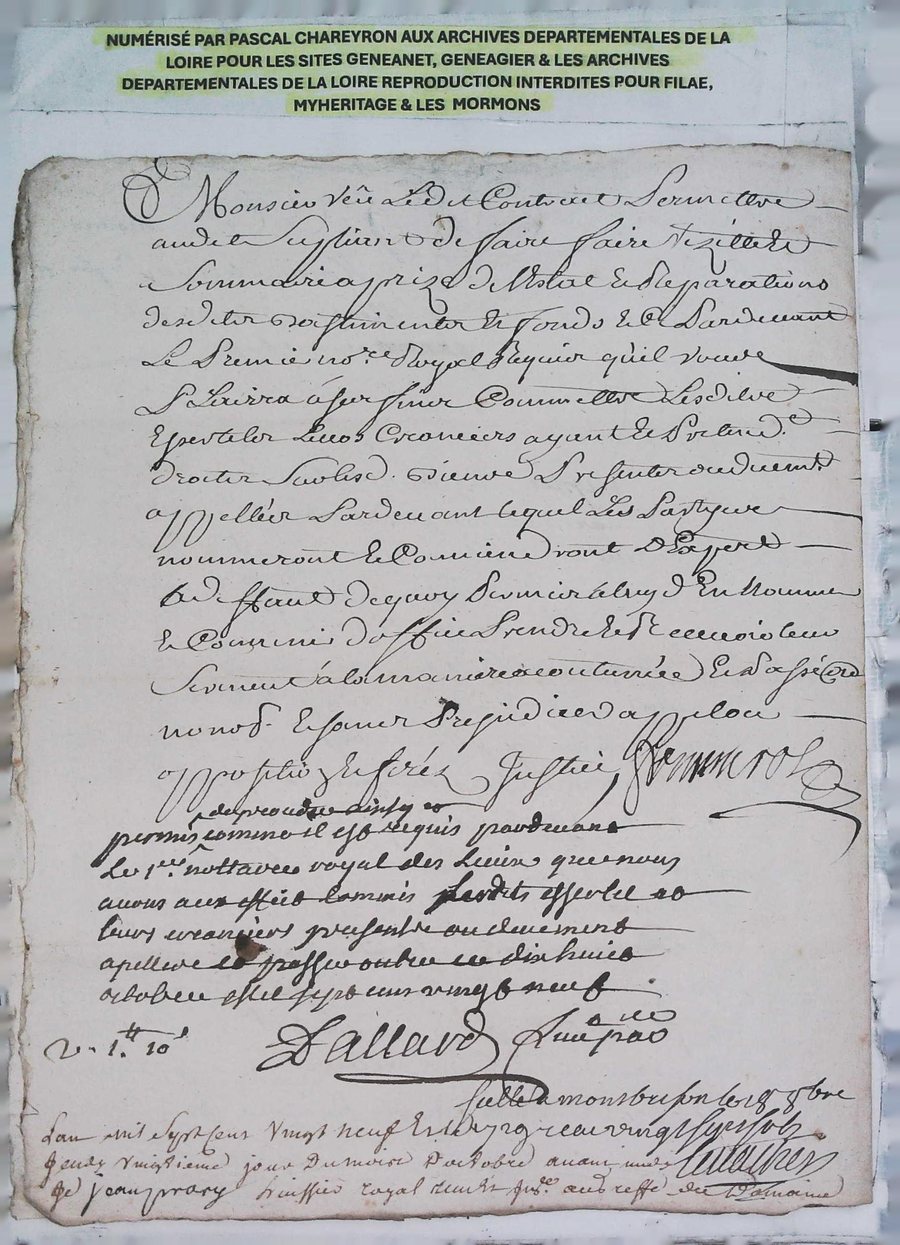 NUMÉRISÉ PAR PASCAL CHAREYRON AUX ARCHIVES DEPARTEMENTALES DE LA
LOIRE POUR LES SITES GENEANET, GENEAGIER & LES ARCHIVES
DEPARTEMENTALES DE LA LOIRE REPRODUCTION INTERDITES POUR FILAE,
MYHERITAGE & LES MORMONS
Monsieur Veu Ledit Contract Permettre
audit Supliant de faire faire
Sommaire aprize de Lestat & Reparations
desdits Bastiments & fonds & ce Pardevant
Le Premier no.re Royal Requis qu'il vous
Plairra à ses fins Commettre Lesdits
Experts Leurs Creanciers ayant & Pretend.
droits Surlesd. Biens Presents ou duem.t
appellés Pardevant lequel Les Partyes
nommeront & Conviendront D'Experts
A deffaut dequoy Permis à luy d'En Nommer
& Convenir d'office Prendre & Recevoir leur
Serment à la maniere accoutumée Et Passé
nonob. & sans Prejudice d'appel ou
oppositio & ferés Justice
de proceder ainsy et
permis comme il est requis pardevant
Le 1.er nottaire royal des lieux que nous
avons aux effect commis lesdits experts et
leurs creanciers presents ou duement
apelles et passer outre ce dix huict
octobre mil sept cent vingt neuf
1.tt 10s
Dallard
Scellé à montbrison le 18 8bre
Lan mil Sept Cent Vingt neuf Et le
Jeudy Vingtieme jour Du mois D'octobre avant midy
Je Jean huissier royal au greffe du Domaine